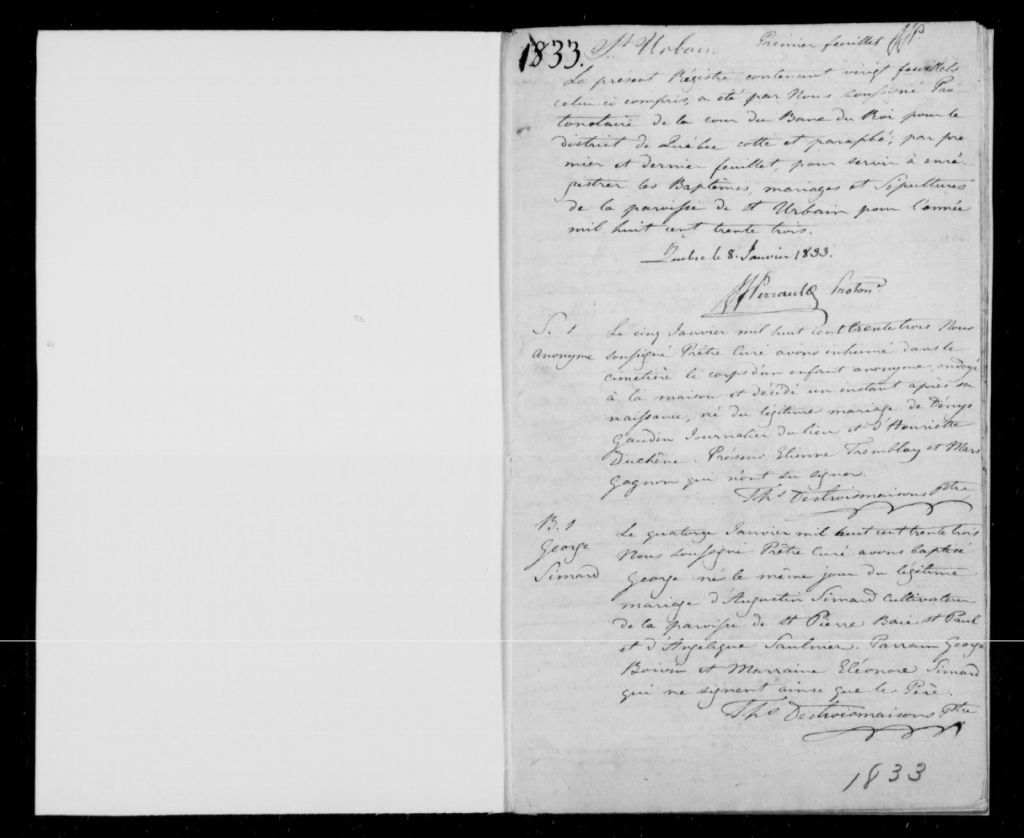 1833. St Urbain Premier feuillet
Le présent Régistre contenant vingt feuillets
celui ci compris, a été par Nous soussigné Pro
tonotaire de la cour du Banc du Roi pour le
district de Québec cotté et paraphé, par pre
mier et dernier feuillet, pour servir à enré-
gistrer les Baptêmes, mariages et Sépultures
de la paroisse de St Urbain pour l'année
mil huit cent trente trois.
Québec le 8. Janvier 1833.
Perrault Proton.
S. 1
Anonyme
Le cinq Janvier mil huit cent trente trois Nous
soussigné Prêtre Curé avons inhumé dans le
cimetière le corps d'un enfant anonyme, ondoyé
à la maison et décédé un instant après sa
naissance, né du légitime mariage de Dénys
Gaudin Journalier du lieu et d'Henriette
Duchêne. Présens Etienne Tremblay et Marc
Gagnon qui n'ont su signer.
Ths Destroismaisons Ptre
B. 1
George
Simard
Le quatorze Janvier mil huit cent trente trois
Nous soussigné Prêtre Curé avons baptisé
George né le même jour du légitime
mariage d'Augustin Simard Cultivateur
de la paroisse de St Pierre Baie St Paul
et d'Angélique Saulnier. Parrain George
Boivin et Marraine Eléonore Simard
qui ne signent ainsi que le Père.
Ths Destroismaisons Ptre
1833